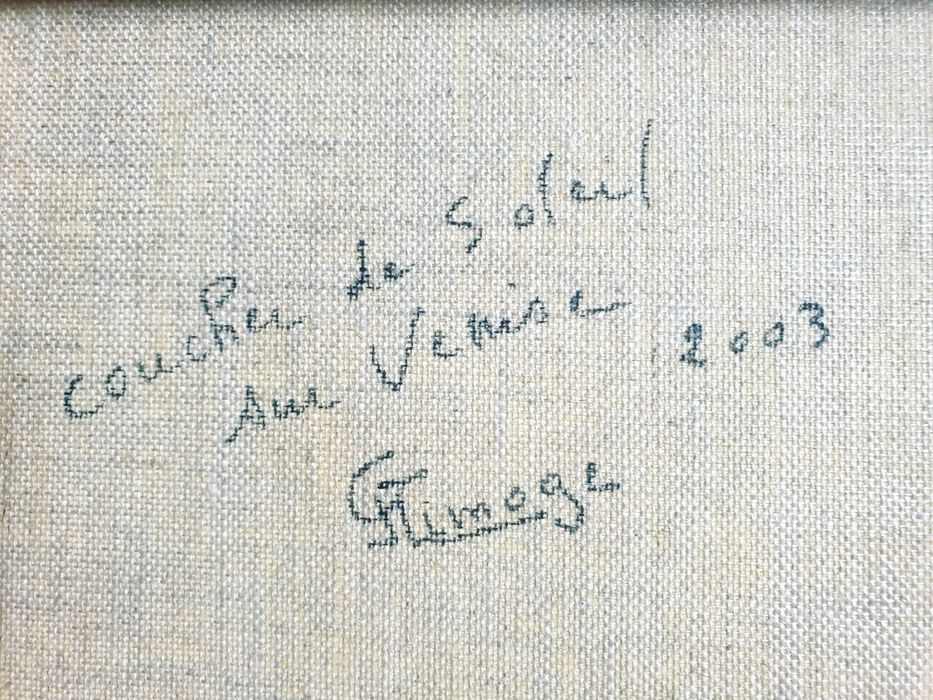 coucher de Soleil
sur Venise 2003
Glimoge